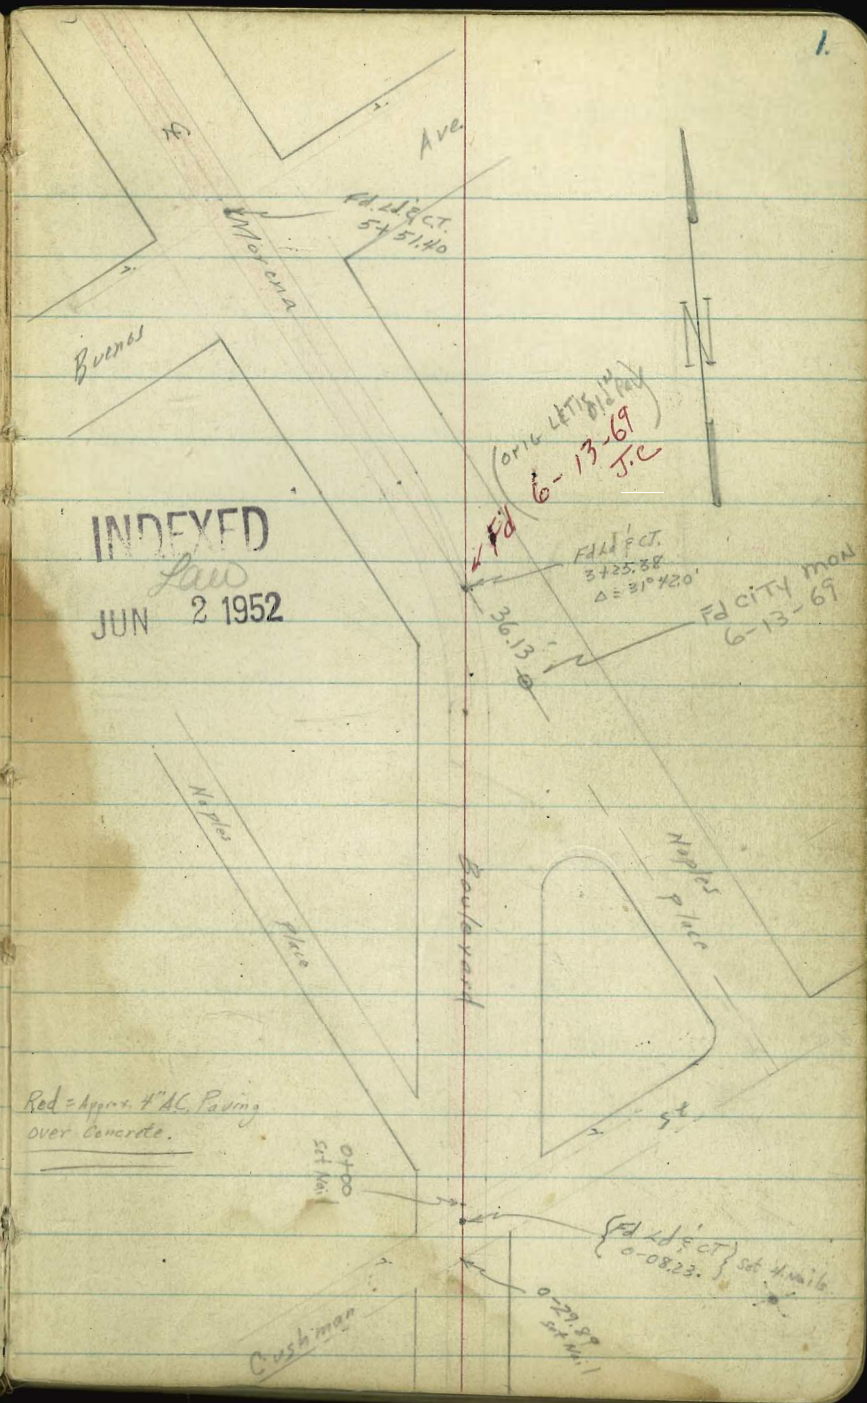 1.
Ave.
Fd. Ld & C.T.
5+51.40
Morena
Buenos
N
(orig LETIS IN
Old Pav)
Fd 6-13-69
J.C
INDEXED
Law
JUN 2 1952
Fd Ld & CT.
3+25.38
Δ=31°42.0'
Fd CITY MON
6-13-69
36.13'
Naples
Place
Naples
Place
Boulevard
Red = Approx. 4" A.C. Paving
over Concrete.
St.
0+00
Set Nail
{Fd Ld & CT}
0-08.23.
Set 4 Nails
0-29.89
Set Nail
Cushman